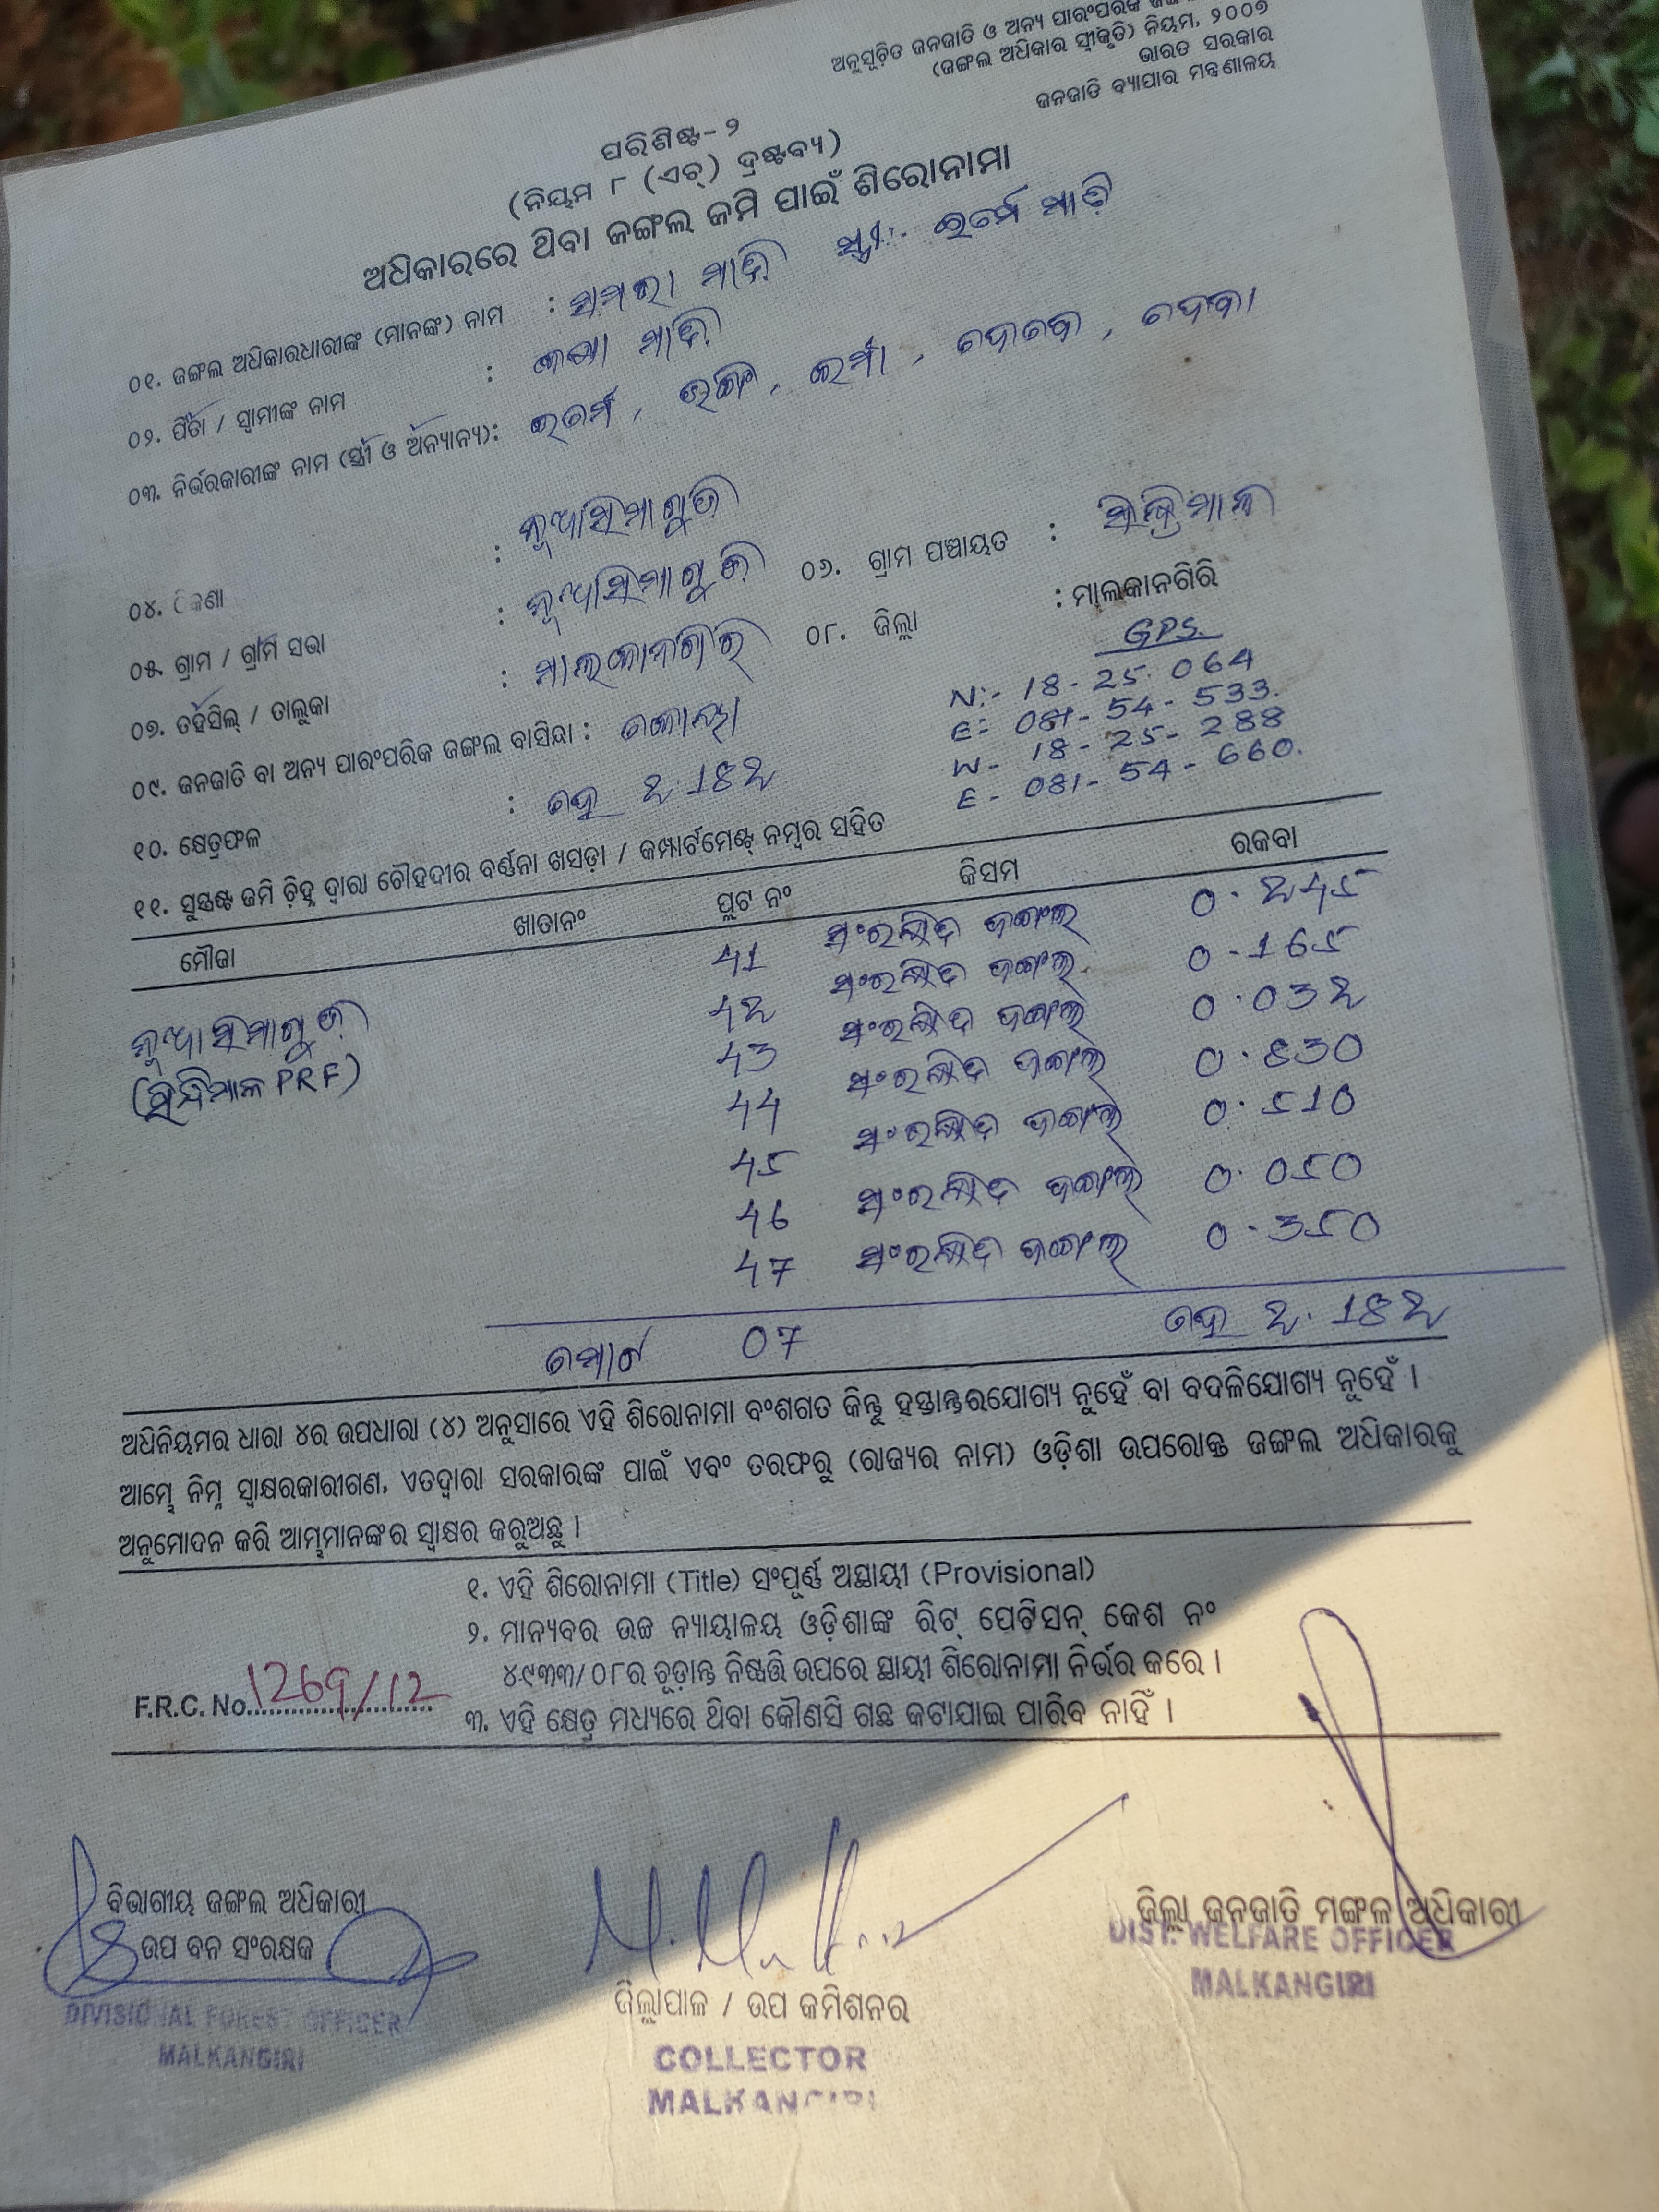 ଅନୁସୂଚିତ ଜନଜାତି ଓ ଅନ୍ୟ ପାରଂପରିକ
(ଜଙ୍ଗଲ ଅଧିକାର ସ୍ୱୀକୃତି) ନିୟମ, ୨୦୦୭
ଭାରତ ସରକାର
ଜନଜାତି ବ୍ୟାପାର ମନ୍ତ୍ରଣାଳୟ
ପରିଶିଷ୍ଟ-୨
(ନିୟମ ୮ (ଏଚ୍) ଦ୍ରଷ୍ଟବ୍ୟ)
ଅଧିକାରରେ ଥିବା ଜଙ୍ଗଲ ଜମି ପାଇଁ ଶିରୋନାମା
୦୧. ଜଙ୍ଗଲ ଅଧିକାରଧାରୀଙ୍କ (ମାନଙ୍କ) ନାମ : ସମରା ମାଡ଼ି ସ୍ତ୍ରୀ. ଇରମେ ମାଡ଼ି
୦୨. ପିତା / ସ୍ୱାମୀଙ୍କ ନାମ : ମାଡ଼ି
୦୩. ନିର୍ଭରକାରୀଙ୍କ ନାମ (ସ୍ତ୍ରୀ ଓ ଅନ୍ୟାନ୍ୟ):
୦୪. ଠିକଣା : ନୂଆସିମାଗୁଡ଼ା
୦୫. ଗ୍ରାମ / ଗ୍ରାମ ସଭା : ନୂଆସିମାଗୁଡ଼ା ୦୬. ଗ୍ରାମ ପଞ୍ଚାୟତ : ସିନ୍ଦ୍ରିମାଳ
୦୭. ତହସିଲ୍ / ତାଲୁକା : ମାଲକାନଗିରି ୦୮. ଜିଲ୍ଲା : ମାଲକାନଗିରି
୦୯. ଜନଜାତି ବା ଅନ୍ୟ ପାରଂପରିକ ଜଙ୍ଗଲ ବାସିନ୍ଦା : କୋୟା
GPS.
N:- 18-25.064
E:- 081-54-533.
W- 18-25-288
E- 081-54-660.
୧୦. କ୍ଷେତ୍ରଫଳ : ହେ 2.182
୧୧. ସୁସ୍ପଷ୍ଟ ଜମି ଚିହ୍ନ ଦ୍ୱାରା ଚୌହଦୀର ବର୍ଣ୍ଣନା ଖସଡ଼ା / କମ୍ପାର୍ଟମେଣ୍ଟ୍ ନମ୍ବର ସହିତ
ମୌଜା ଖାତାନଂ ପ୍ଲଟ ନଂ କିସମ ରକବା
ନୂଆସିମାଗୁଡ଼ା 41 ସଂରକ୍ଷିତ ଜଙ୍ଗଲ 0.245
(ସିନ୍ଦ୍ରିମାଳ PRF) 42 ସଂରକ୍ଷିତ ଜଙ୍ଗଲ 0.165
43 ସଂରକ୍ଷିତ ଜଙ୍ଗଲ 0.032
44 ସଂରକ୍ଷିତ ଜଙ୍ଗଲ 0.830
45 ସଂରକ୍ଷିତ ଜଙ୍ଗଲ 0.510
46 ସଂରକ୍ଷିତ ଜଙ୍ଗଲ 0.050
47 ସଂରକ୍ଷିତ ଜଙ୍ଗଲ 0.350
ମୋଟ 07 ହେ 2.182
ଅଧିନିୟମର ଧାରା ୪ର ଉପଧାରା (୪) ଅନୁସାରେ ଏହି ଶିରୋନାମା ବଂଶଗତ କିନ୍ତୁ ହସ୍ତାନ୍ତରଯୋଗ୍ୟ ନୁହେଁ ବା ବଦଳିଯୋଗ୍ୟ ନୁହେଁ ।
ଆମ୍ଭେ ନିମ୍ନ ସ୍ୱାକ୍ଷରକାରୀଗଣ, ଏତଦ୍ୱାରା ସରକାରଙ୍କ ପାଇଁ ଏବଂ ତରଫରୁ (ରାଜ୍ୟର ନାମ) ଓଡ଼ିଶା ଉପରୋକ୍ତ ଜଙ୍ଗଲ ଅଧିକାରକୁ
ଅନୁମୋଦନ କରି ଆମ୍ଭମାନଙ୍କର ସ୍ୱାକ୍ଷର କରୁଅଛୁ ।
୧. ଏହି ଶିରୋନାମା (Title) ସଂପୂର୍ଣ୍ଣ ଅସ୍ଥାୟୀ (Provisional)
୨. ମାନ୍ୟବର ଉଚ୍ଚ ନ୍ୟାୟାଳୟ ଓଡ଼ିଶାଙ୍କ ରିଟ୍ ପେଟିସନ୍ କେଶ ନଂ
୪୯୩୩/୦୮ର ଚୂଡ଼ାନ୍ତ ନିଷ୍ପତ୍ତି ଉପରେ ସ୍ଥାୟୀ ଶିରୋନାମା ନିର୍ଭର କରେ ।
F.R.C. No. 1269/12
୩. ଏହି କ୍ଷେତ୍ର ମଧ୍ୟରେ ଥିବା କୌଣସି ଗଛ କଟାଯାଇ ପାରିବ ନାହିଁ ।
ବିଭାଗୀୟ ଜଙ୍ଗଲ ଅଧିକାରୀ
ଉପ ବନ ସଂରକ୍ଷକ
DIVISIONAL FOREST OFFICER
MALKANGIRI
ଜିଲ୍ଲାପାଳ / ଉପ କମିଶନର
COLLECTOR
MALKANGIRI
ଜିଲ୍ଲା ଜନଜାତି ମଙ୍ଗଳ ଅଧିକାରୀ
DIST. WELFARE OFFICER
MALKANGIRI